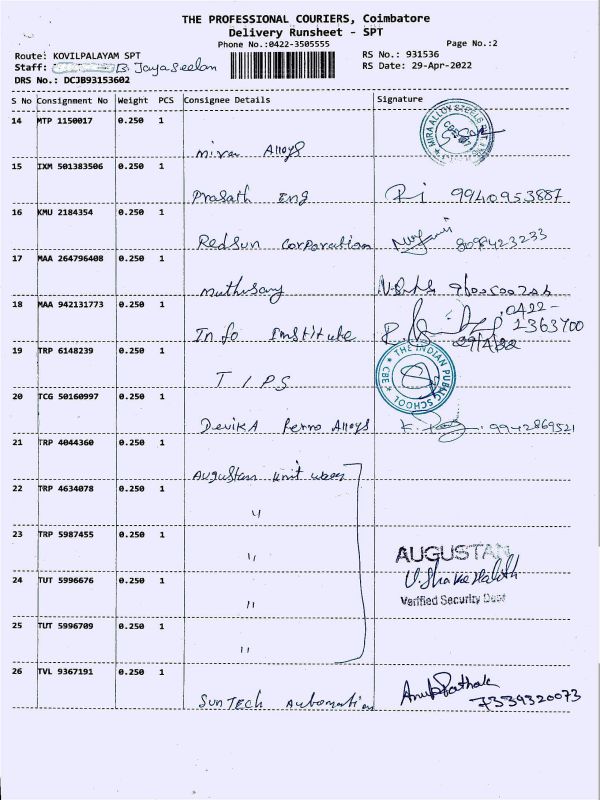 THE PROFESSIONAL COURIERS, Coimbatore
Delivery Runsheet - SPT
Phone No.:0422-3505555
Page No.:2
Route: KOVILPALAYAM SPT
RS No.: 931536
Staff: B. Jayaseelan
RS Date: 29-Apr-2022
DRS No.: DCJB93153602
S No Consignment No Weight PCS Consignee Details Signature
14 MTP 1150017 0.250 1
Miraa Alloys
MIRA ALLOY STEELS
15 IXM 501383506 0.250 1
Prasath Eng 9940953887
16 KMU 2184354 0.250 1
Redsun Corporation 8098423233
17 MAA 264796408 0.250 1
Muthusamy
18 MAA 942131773 0.250 1
Info Institute 0422-
2363700
29/4/22
19 TRP 6148239 0.250 1
TIPS
THE INDIAN PUBLIC SCHOOL
* CBE *
20 TCG 50160997 0.250 1
Devika Ferro Alloys 9942869521
21 TRP 4044360 0.250 1
Augustan knit wear
22 TRP 4634078 0.250 1
"
23 TRP 5987455 0.250 1
"
AUGUSTAN
24 TUT 5996676 0.250 1
"
Verified Security Dept
25 TUT 5996709 0.250 1
"
26 TVL 9367191 0.250 1
SunTech Automation
7339320073